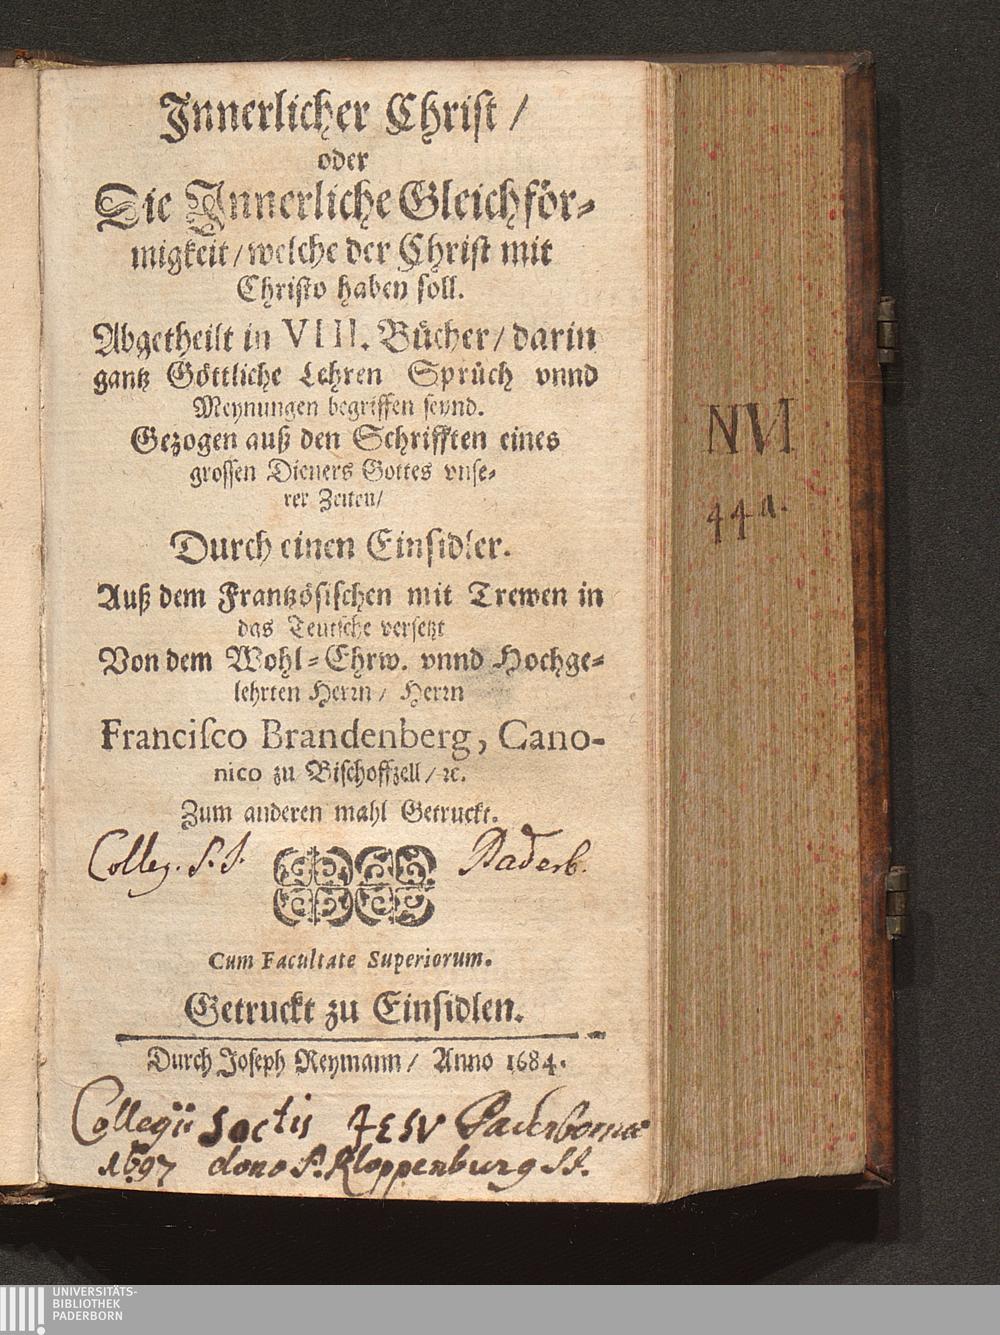 Innerlicher Christ /
oder
Die Innerliche Gleichför-
migkeit / welche der Christ mit
Christo haben soll.
Abgetheilt in VIII. Bücher / darin
gantz Göttliche Lehren Sprüch vnnd
Meynungen begriffen seynd.
Gezogen auß den Schrifften eines
grossen Dieners Gottes vnse-
rer Zeiten /
Durch einen Einsidler.
Auß dem Frantzösischen mit Trewen in
das Teutsche versetzt
Von dem Wohl-Ehrw. vnnd Hochge-
lehrten Herrn / Herrn
Francisco Brandenberg, Cano-
nico zu Bischoffzell / ꝛc.
Zum anderen mahl Getruckt.
Colleg. S. J. Paderb.
Cum Facultate Superiorum.
Getruckt zu Einsidlen.
Durch Joseph Reymann / Anno 1684.
Collegii Soctis JESV Paderbornæ
1697 dono P. Kloppenburg SJ.
NVI
44a.
UNIVERSITÄTS-
BIBLIOTHEK
PADERBORN